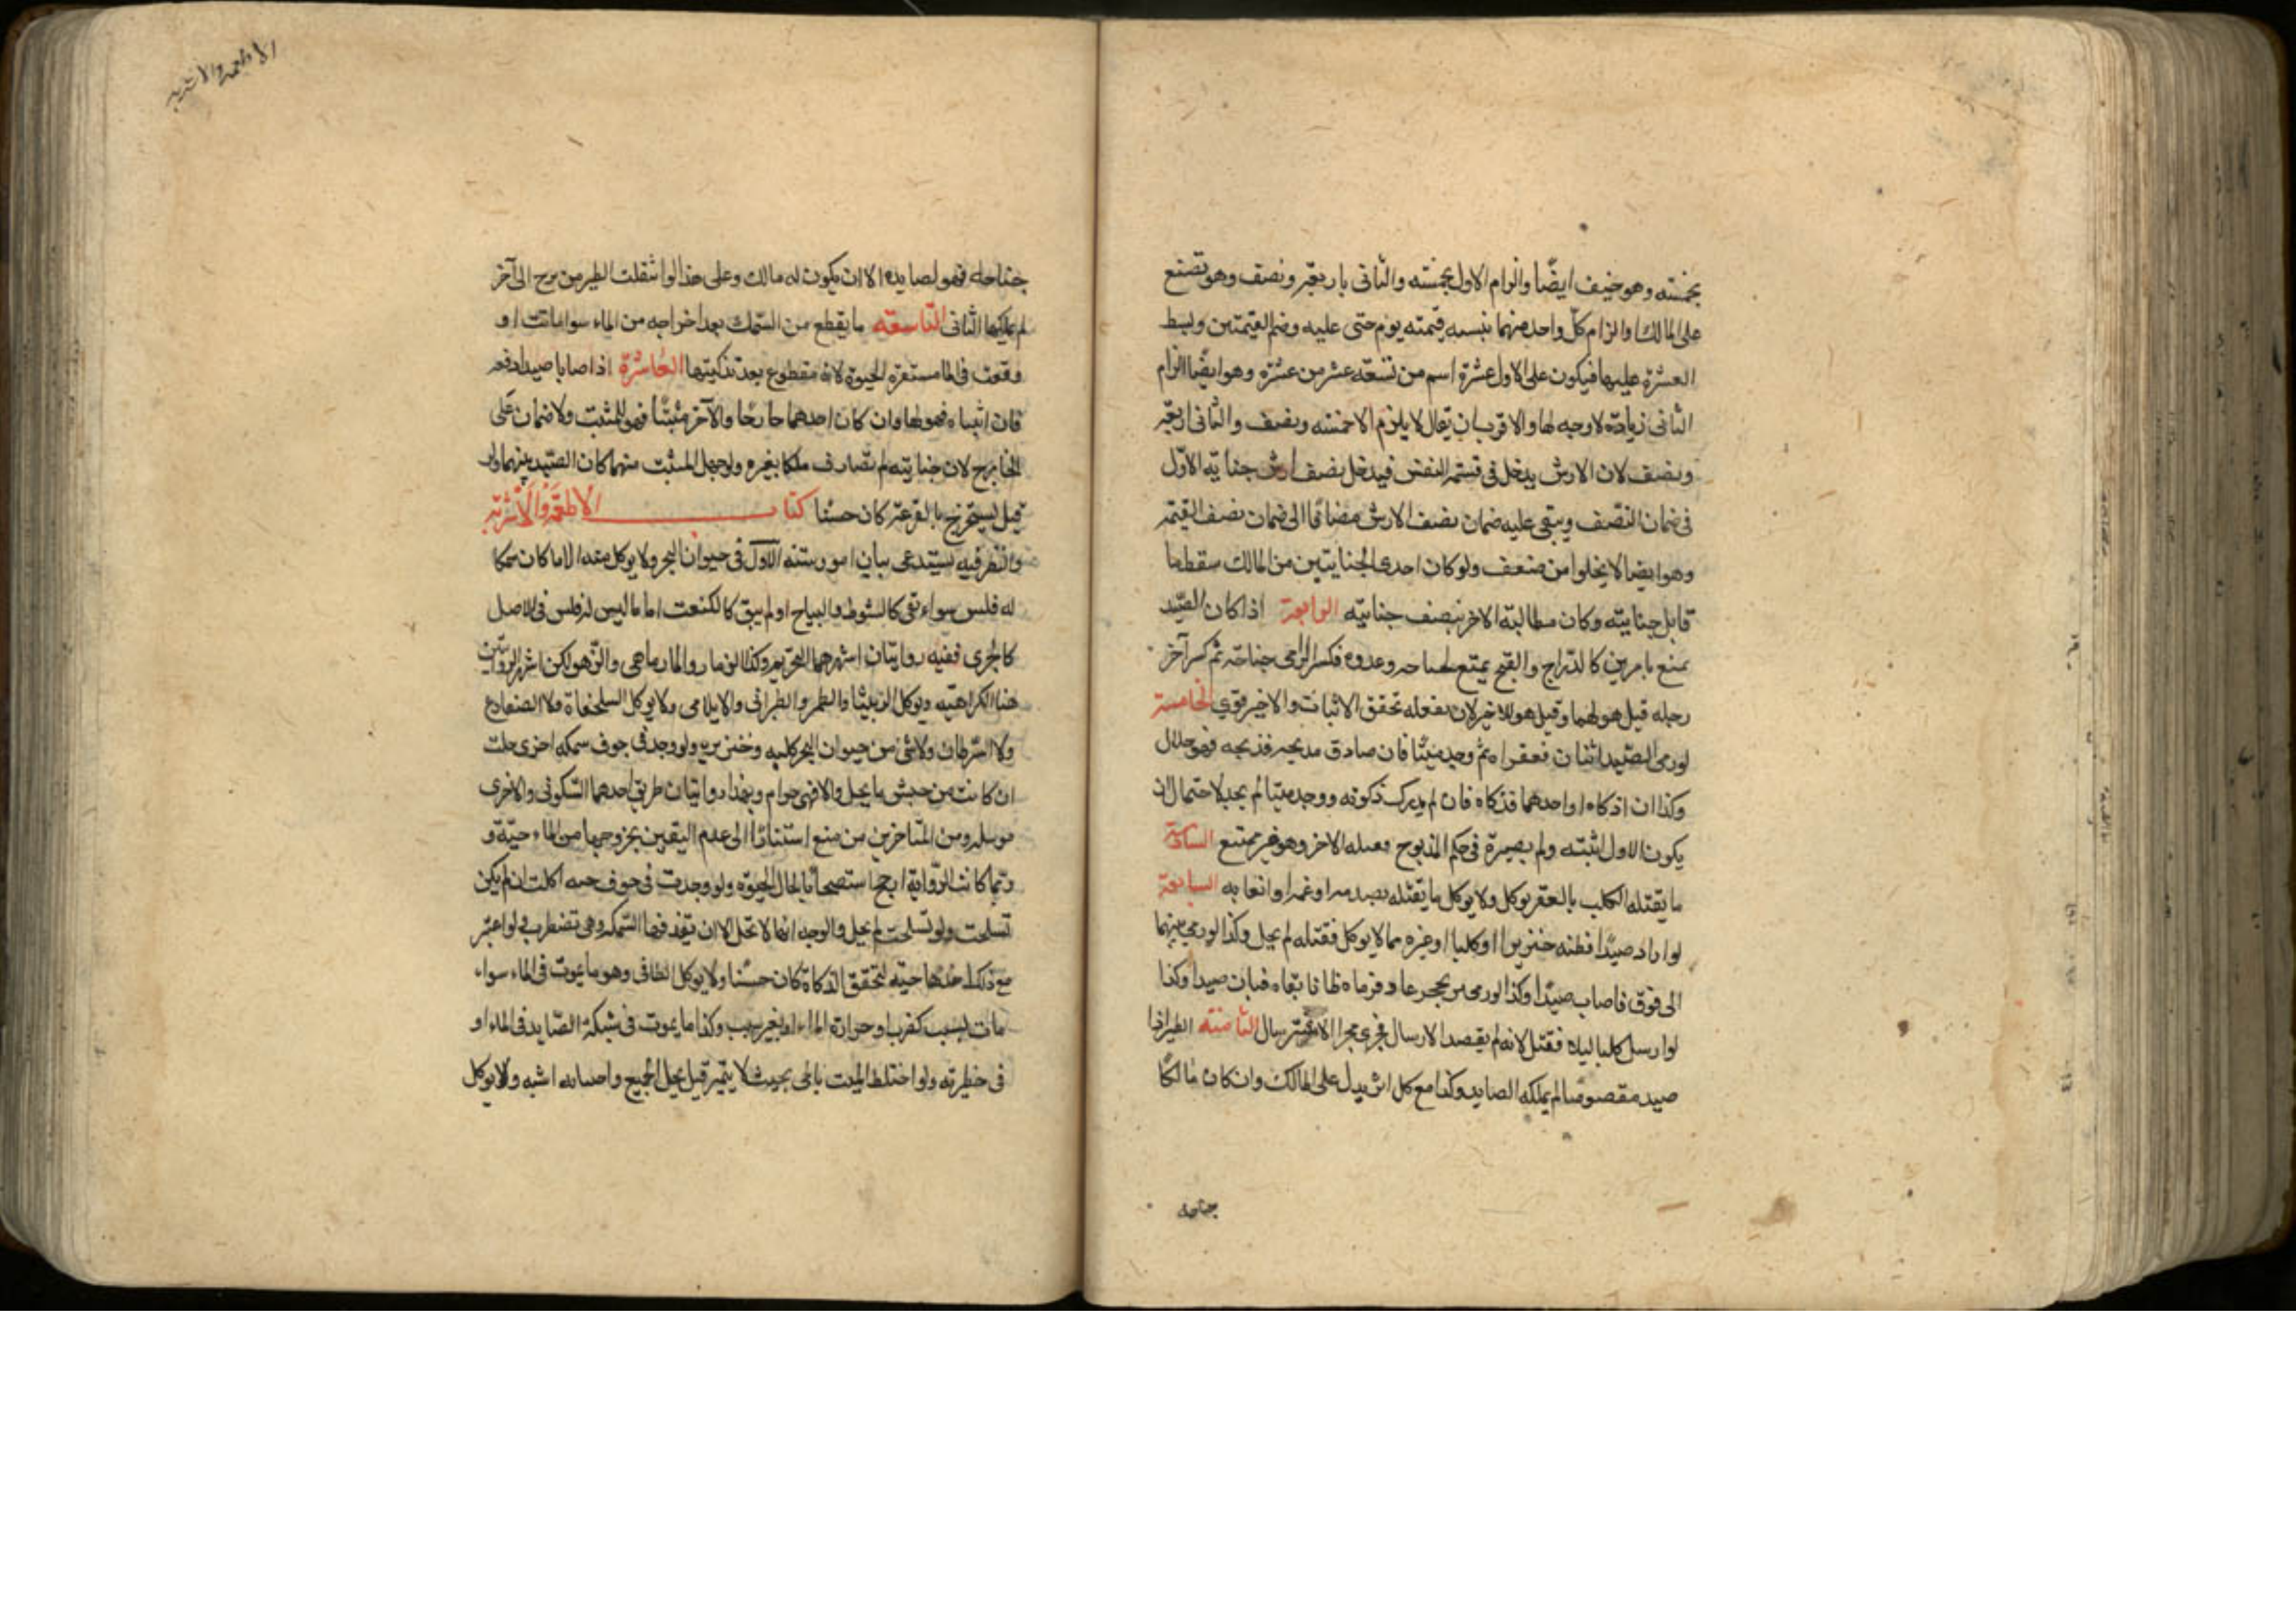 بخمسته وهو حيف ايضًا والزام الاول بخمسته والثانى باربعة ونصف وهو تضييع
على المالك او الزام كل واحد منهما بنسبه قيمته يوم جنى عليه وضم القيمتين وبسط
العشرة عليهما فيكون على الاول عشرة اسهم من تسعة عشر من عشرة وهو ايضًا الزام
الثانى زيادة لا وجه لها والاقرب ان يقال لا يلزم الا خمسه ونصف والثانى اربعة
ونصف لان الارش يدخل فى قسمة النفس فيدخل نصف ارش جناية الاول
فى ضمان النصف ويبقى عليه ضمان نصف الارش مضافًا الى ضمان نصف القيمة
وهو ايضا لا يخلوا من ضعف ولو كان احدى الجنايتين من المالك سقط ما
قابل جنايته وكان مطالبة الاخر بنصف جنايته الرابعة اذا كان الصيد
يمتنع بامرين كالدراج والقبج يمتنع بجناحه وعدوه فكسر الرامى جناحه ثم كسر آخر
رجله قيل هو لهما وقيل هو للاخير لان بفعله تحقق الاثبات والاخير قوى الخامسة
لو رمى الصيد اثنان فعقراه ثم وجد ميتا فان صادف مذبحه فذبحه فهو حلال
وكذا ان ادركاه او احدهما فذكاه فان لم يدرك ذكوته ووجد ميتا لم يحل لاحتمال ان
يكون الاول اثبته ولم يصيره فى حكم المذبوح فقتله الاخر وهو غير ممتنع السادسة
ما يقتله الكلب بالعقر يوكل ولا يوكل ما يقتله بصدمه او غمه او اتعابه السابعة
لو راى صيدًا فظنه خنزيرا او كلبا او غيره مما لا يوكل فقتله لم يحل وكذا لو رمى سهما
الى فوق فاصاب صيدًا وكذا لو مر بحجر عاد فرماه ظانا بقاه فبان صيدا وكذا
لو ارسل كلبا ليلا فقتل لانه لم يقصد الارسال فجرى مجرا الاسترسال الثامنه الطير اذا
صيد مقصوصا لم يملكه الصايد وكذا مع كل اثر يدل على المالك وان كان مالكا
جناحه
الاطعمة والاشربه
جناحه فهو لصايده الا ان يكون له مالك وعلى هذا لو انتقلت الطير من برج الى آخر
لم يملكها الثانى التاسعة ما يقطع من السمك بعد اخراجه من الماء سوا ماتت او
وقعت فى الما مستقرة الحيوة لانه مقطوع بعد تذكيتها العاشرة اذا اصابا صيدا دفعه
فان اثبتاه فهو لهما وان كان احدهما جارحا والآخر مثبتًا فهو للمثبت ولا ضمان على
الجارح لان جنايته لم تصادف ملكا لغيره ولو جهل المثبت منهما كان الصيد بينهما ولو
قيل يستخرج بالقرعة كان حسنا كتاب الاطعمة والاشربة
والنظر فيه يستدعى بيان امور ستة الاول فى حيوان البحر ولا يوكل منه الا ما كان سمكا
له فلس سواء بقى كالشبوط والبياح او لم يبق كالكنعت اما ما ليس له فلس فى الاصل
كالجرى ففيه روايتان اشهرهما التحريم وكذا الزمار والمارماهى والزهو لكن اشهر الروايتين
هنا الكراهية ويوكل الربيثا والطمر والطبرانى والابلامى ولا يوكل السلحفاة ولا الضفادع
ولا السرطان ولا شى من حيوان البحر ككلبه وخنزيره ولو وجد فى جوف سمكه اخرى حلت
ان كانت من جنس ما يحل والا فهى حرام وبهذا روايتان طريق احدهما السكونى والاخرى
مرسله ومن المتاخرين من منع استنادًا الى عدم اليقين بخروجها من الماء حية و
ربما كانت الرواية ارجح استصحابا لحال الحيوة ولو وجدت فى جوف حيه اكلت ان لم يكن
تسلخت ولو تسلخت لم يحل والوجه انها لا تحل الا ان تقذفها السمكه وهى تضطرب ولو اعتبر
مع ذلك اخذها حيه لتحقق الذكاة كان حسنا ولا يوكل الطافى وهو ما يموت فى الماء سواء
مات بسبب كضرب او حرارة الماء او بغير سبب وكذا ما يموت فى شبكة الصايد فى الماء او
فى حظيرته ولو اختلط الميت بالحى بحيث لا يتميز قيل يحل الجميع واجتنابه اشبه ولا يوكل